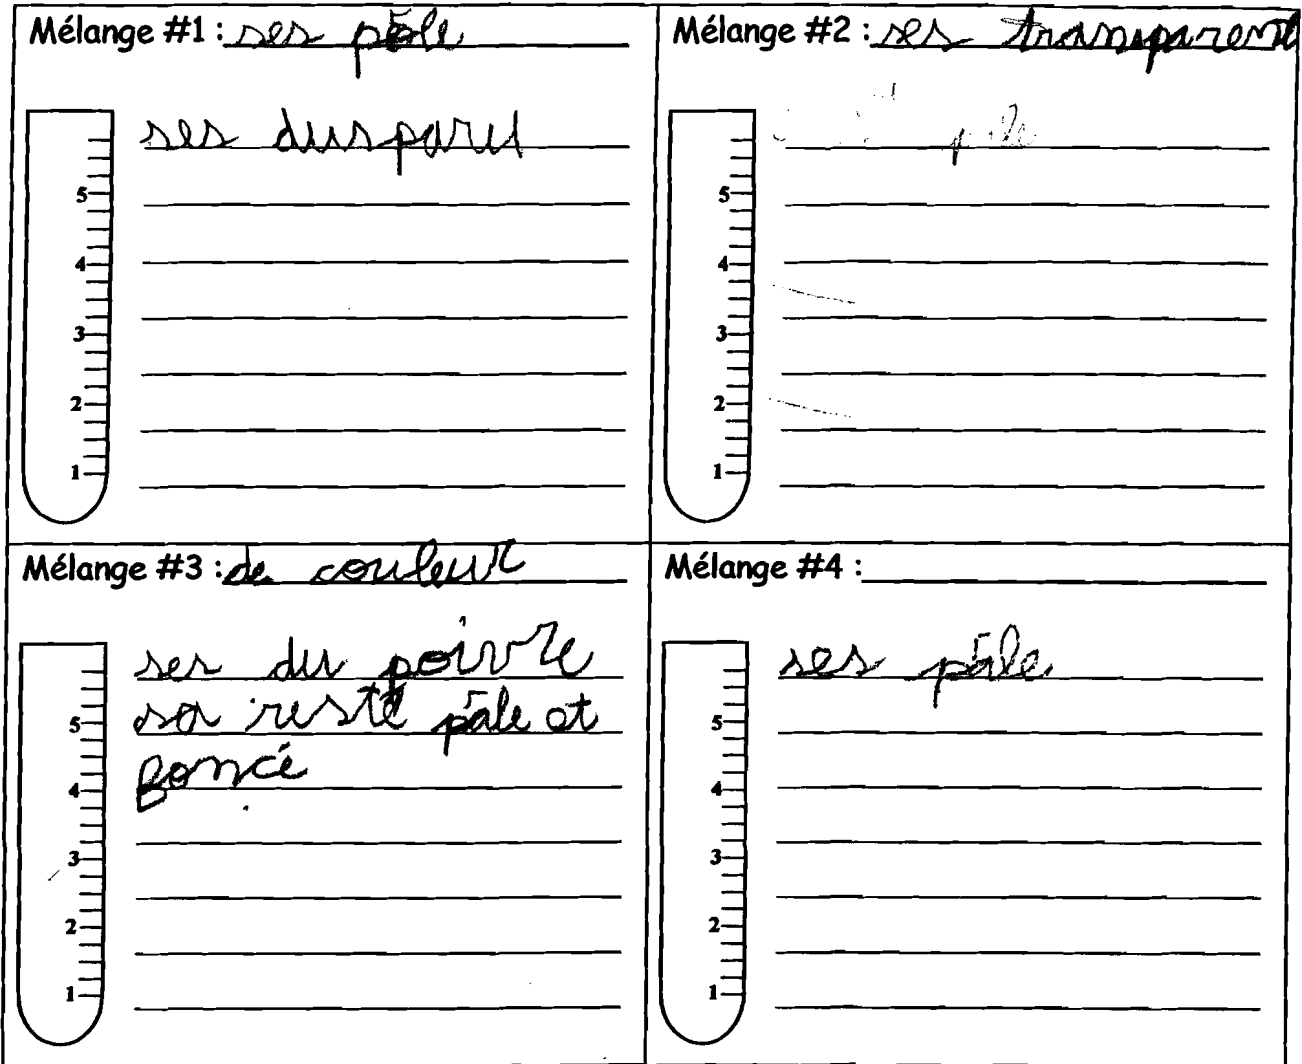 Mélange #1 : ses pâle
ses dusparu
5
4
3
2
1
Mélange #2 : ses transparent
pâle
5
4
3
2
1
Mélange #3 : de couleur
ses du poivre
sa reste pâle et
foncé
5
4
3
2
1
Mélange #4 :
ses pâle
5
4
3
2
1